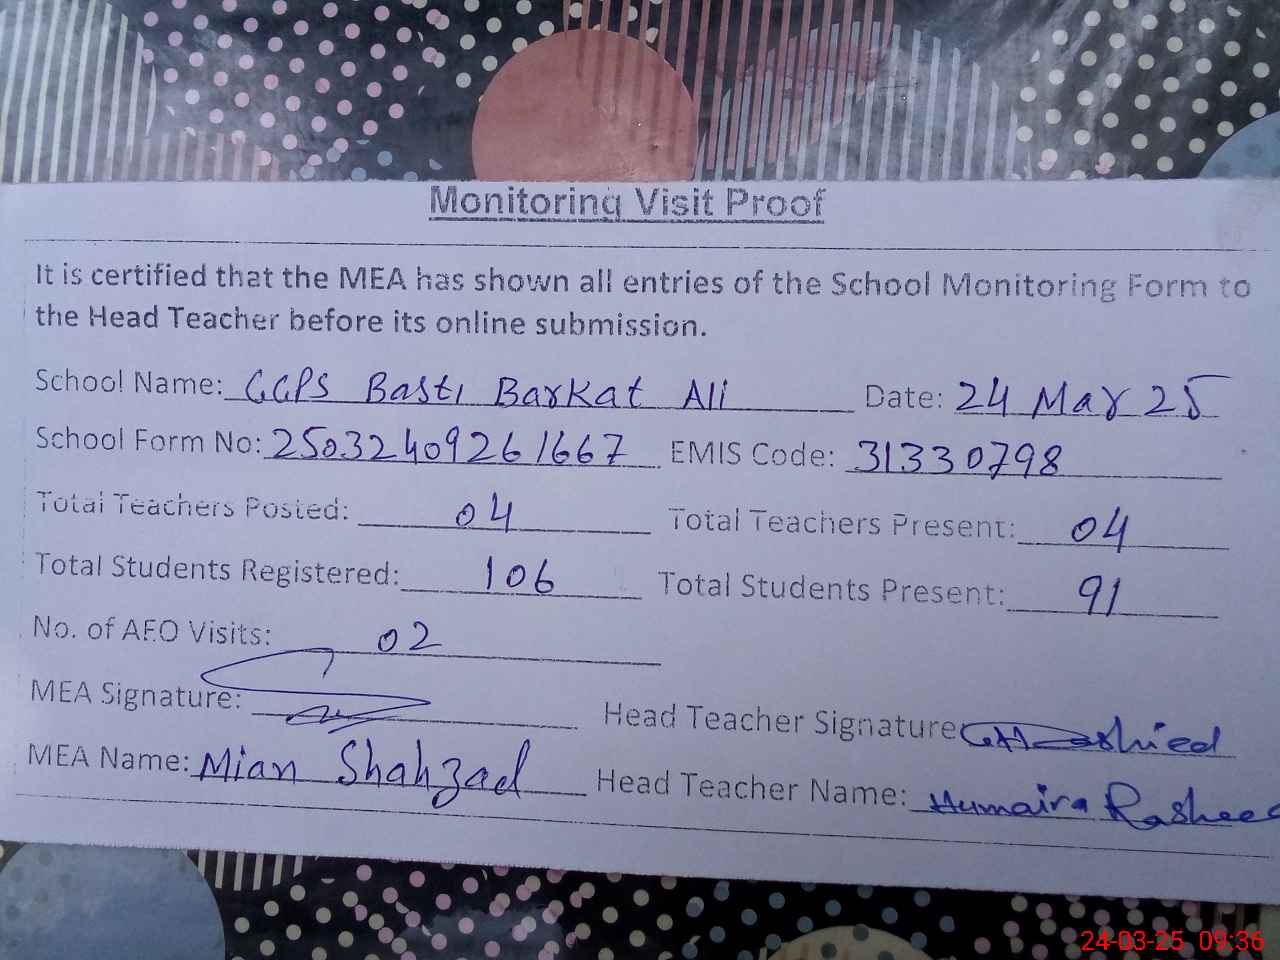 Monitoring Visit Proof
It is certified that the MEA has shown all entries of the School Monitoring Form to
the Head Teacher before its online submission.
School Name: GGPS Basti Barkat Ali Date: 24 Mar 25
School Form No: 25032409261667 EMIS Code: 31330798
Total Teachers Posted: 04 Total Teachers Present: 04
Total Students Registered: 106 Total Students Present: 91
No. of AEO Visits: 02
MEA Signature: Head Teacher Signature
MEA Name: Mian Shahzad Head Teacher Name: Humaira Rasheed
24-03-25 09:36